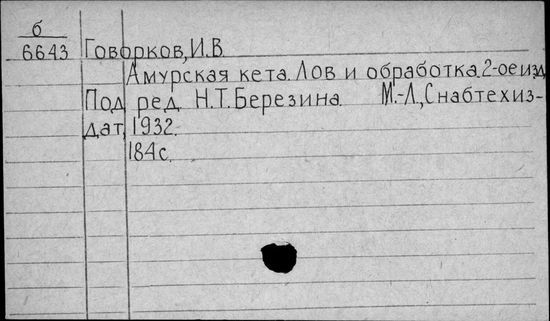 б
6643 Говорков, И.В
Амурская кета. Лов и обработка. 2-ое изд
Под ред. Н.Т. Березина. М.-Л., Снабтехиз-
дат, 1932.
184с.